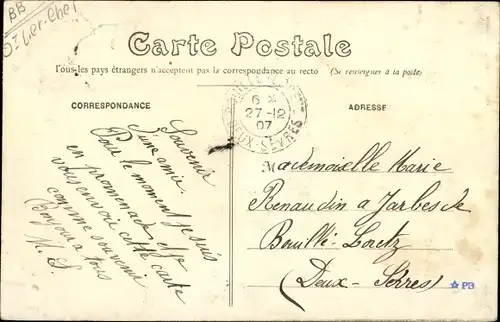 BB
St Ger. Chef
Carte Postale
Tous les pays étrangers n'acceptent pas la correspondance au recto (Se renseigner à la poste)
CORRESPONDANCE
ADRESSE
6 *
27-12
07
DEUX-SÈVRES
Souvenir
d'une amie
Pour le moment je suis
en promenade et je
vous envoie cette carte
comme souvenir
Bonjour à tous
M. S.
Mademoiselle Marie
Renaudin a Jarbes de
Bouillé-Loretz
(Deux-Sèvres)
PB